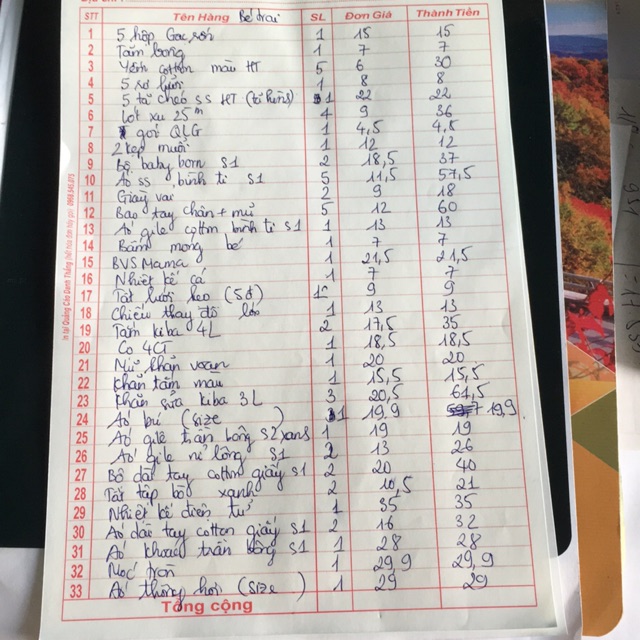 STT Tên Hàng Bé trai SL Đơn Giá Thành Tiền
1 5 hộp Gạc rơ 1 15 15
2 Tăm bông 1 7 7
3 Yếm cotton màu HT 5 6 30
4 5 sơ 1 8 8
5 5 tã chéo SS HT 1 22 22
6 Lót xu 25m 4 9 36
7 gói QLG 1 4,5 4,5
8 2 kẹp muỗi 1 12 12
9 Bộ baby born S1 2 18,5 37
10 Áo ss bình ti S1 5 11,5 57,5
11 Giày vải 2 9 18
12 Bao tay chân + mũ 5 12 60
13 Áo gile cotton bình ti S1 1 13 13
14 Bấm móng bé 1 7 7
15 BVS Mama 1 21,5 21,5
16 Nhiệt kế cá 1 7 7
17 Tất lưới keo (Sơ) 1 9 9
18 Chiếu thay đồ 1 13 13
19 Tăm kiba 4L 2 17,5 35
20 Co 4CT 1 18,5 18,5
21 Mũ khăn voan 1 20 20
22 Khăn tắm màu 1 15,5 15,5
23 Khăn sữa kiba 3L 3 20,5 61,5
24 Áo bú (size ) 1 19,9 19,9
25 Áo gilê trần bông S2 xanh 1 19 19
26 Áo gile nỉ lông S1 2 13 26
27 Bộ dài tay cotton giấy S1 2 20 40
28 Tất tập bò xanh 2 10,5 21
29 Nhiệt kế điện tử 1 35 35
30 Áo dài tay cotton giấy S1 2 16 32
31 Áo khoác trần bông S1 1 28 28
32 Móc tròn 1 29,9 29,9
33 Áo thông hơi (size ) 1 29 29
Tổng cộng
In tại Quảng Cáo Danh Thắng